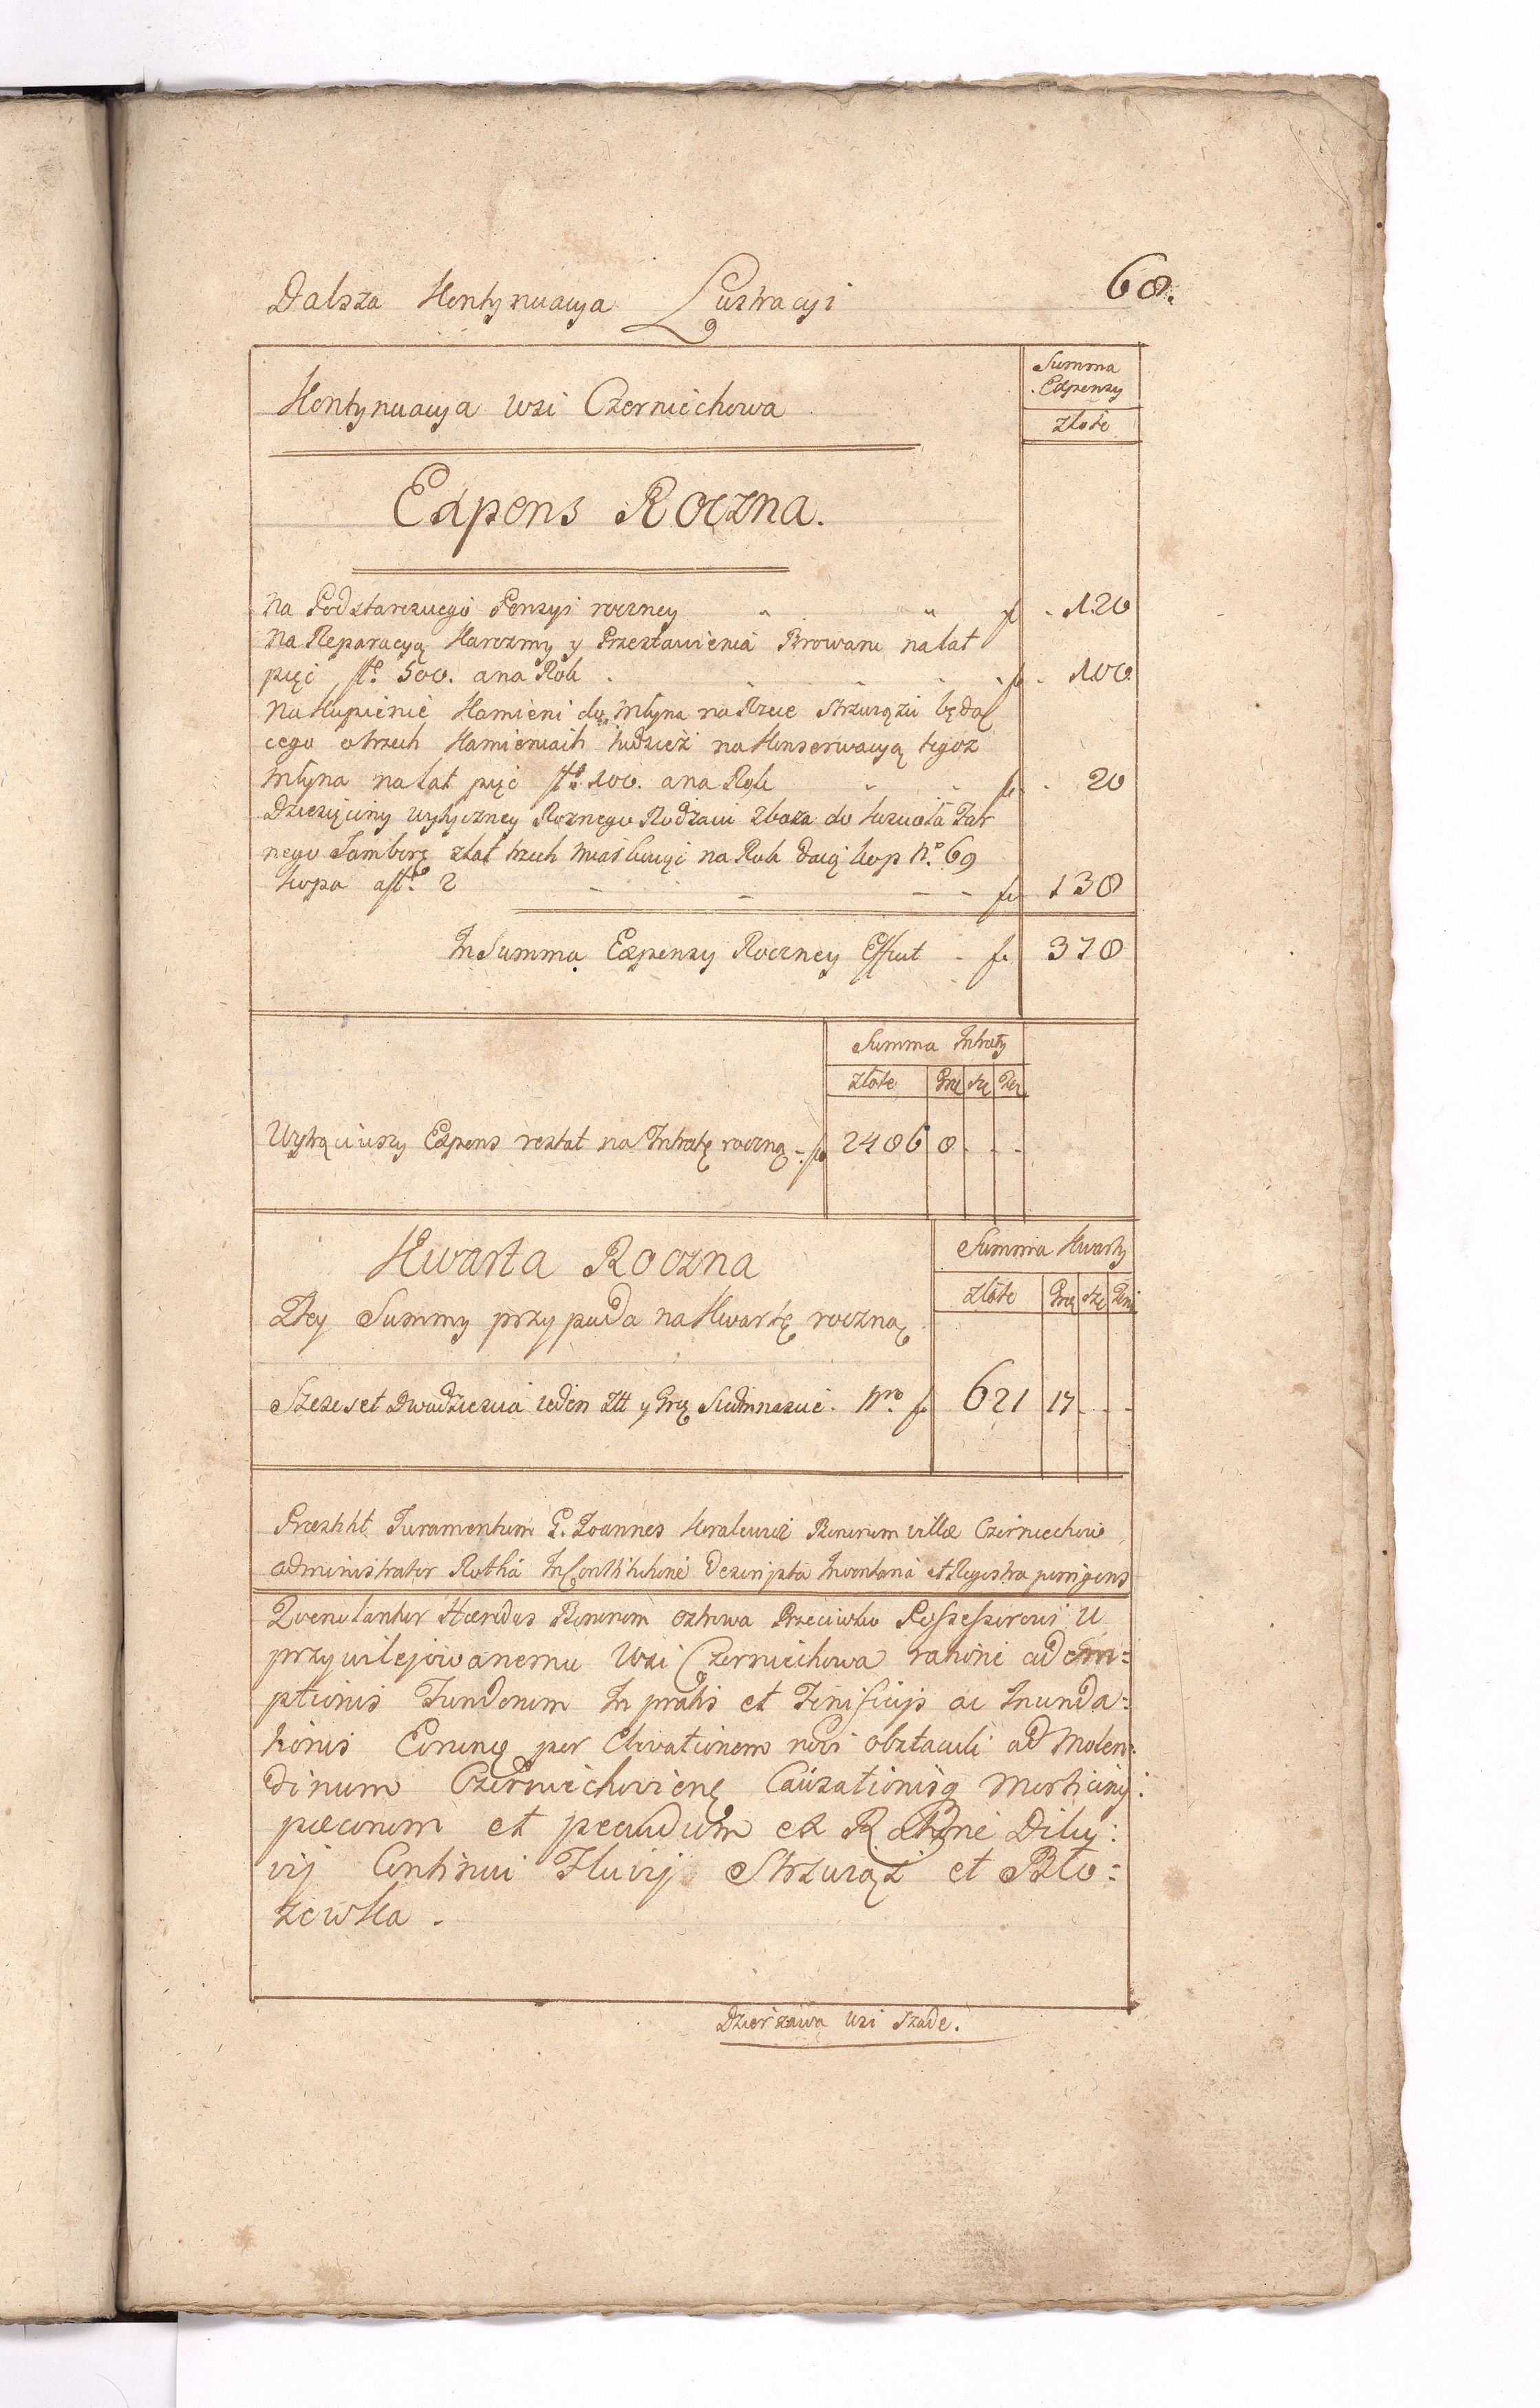 Dalsza Kontynuacya Lustracyi
68.
Kontynuacya Wsi Czerniechowa
Summa
Expensy
złote
Expens Roczna.
Na Podstarosciego Pensyi roczney f 120
Na Reparacyą Karczmy y Przestawienia Browaru na lat
pięć fl. 500. a na Rok f 100
Na Kupienie Kamieni do Młyna na Rzece Strzwiąziu będą
cego o trzech Kamieniach tudzież na Konserwacyą tegoż
Młyna na lat pięć fl. 100. a na Rok f 20
Dziesięciny wytyczney Roznego Rodzaiu Zboża do Kościoła Far
nego Samborę z lat trzech miarkuiąc na Rok daią kop No. 69
kopa a fl. 2 f 138
In Summa Expensy Roczney Efficit f. 378
Summa Intraty
złote Grę Szę Den
Wytrąciwszy Expens restat na Intratę roczną f 2486 8
Kwarta Roczna
Summa Kwarty
złote Grę Szę Deni
Z tey Summy przypada na Kwartę roczną
Szescset Dwadziescia ieden Złł y Grę Siedmnascie. Nro f 621 17
Præstitit Juramentum G. Joannes Koralewicz Bonorum villæ Czerniechow
administrator Rotha In Constitutione descripta Inventaria et Regestra porrigens
Querulantur Hæredes Bonorum Ostrowa Przeciwko Possessorowi U
przywilejowanemu Wsi Czerniechowa ratione adem=
ptionis Fundorum In pratis et Fenificijs ac Inunda=
tionis Eorung per Elevationem novi obstaculi ad Molen=
dinum Czerniechoviens Causationisq morticiny
pecorum et pecudum et Ratione Diluv:
vij Continui Fluvij Strzwiąż et Bło=
żewka.
Dzierżawa Wsi Szade.